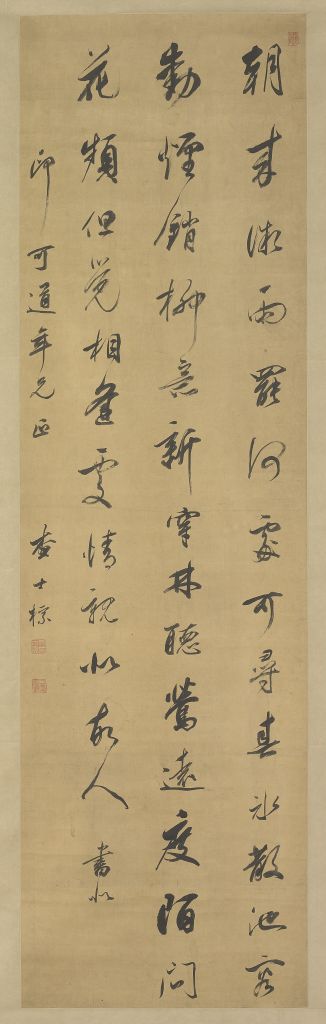 朝來微雨罷何處可尋春冰散池容
動煙銷柳意新穿林聽鶯遠度陌問
花頻但覺相逢處情親似故人書似
印可道年兄正查士標